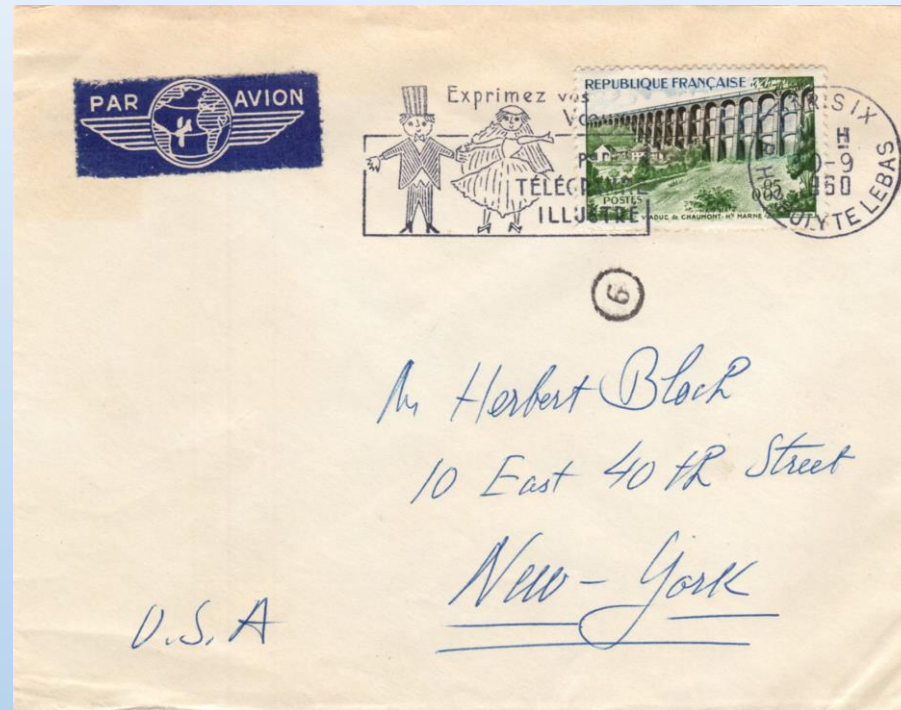 PAR AVION
Exprimez vos
Vœux
TÉLÉGRAMME
ILLUSTRÉ
REPUBLIQUE FRANÇAISE
0,85
POSTES
VIADUC de CHAUMONT-Hte MARNE
PARIS IX
H
-9
1960
R. HIPPOLYTE LEBAS
6
Mr Herbert Bloch
10 East 40 th Street
New-York
U.S.A